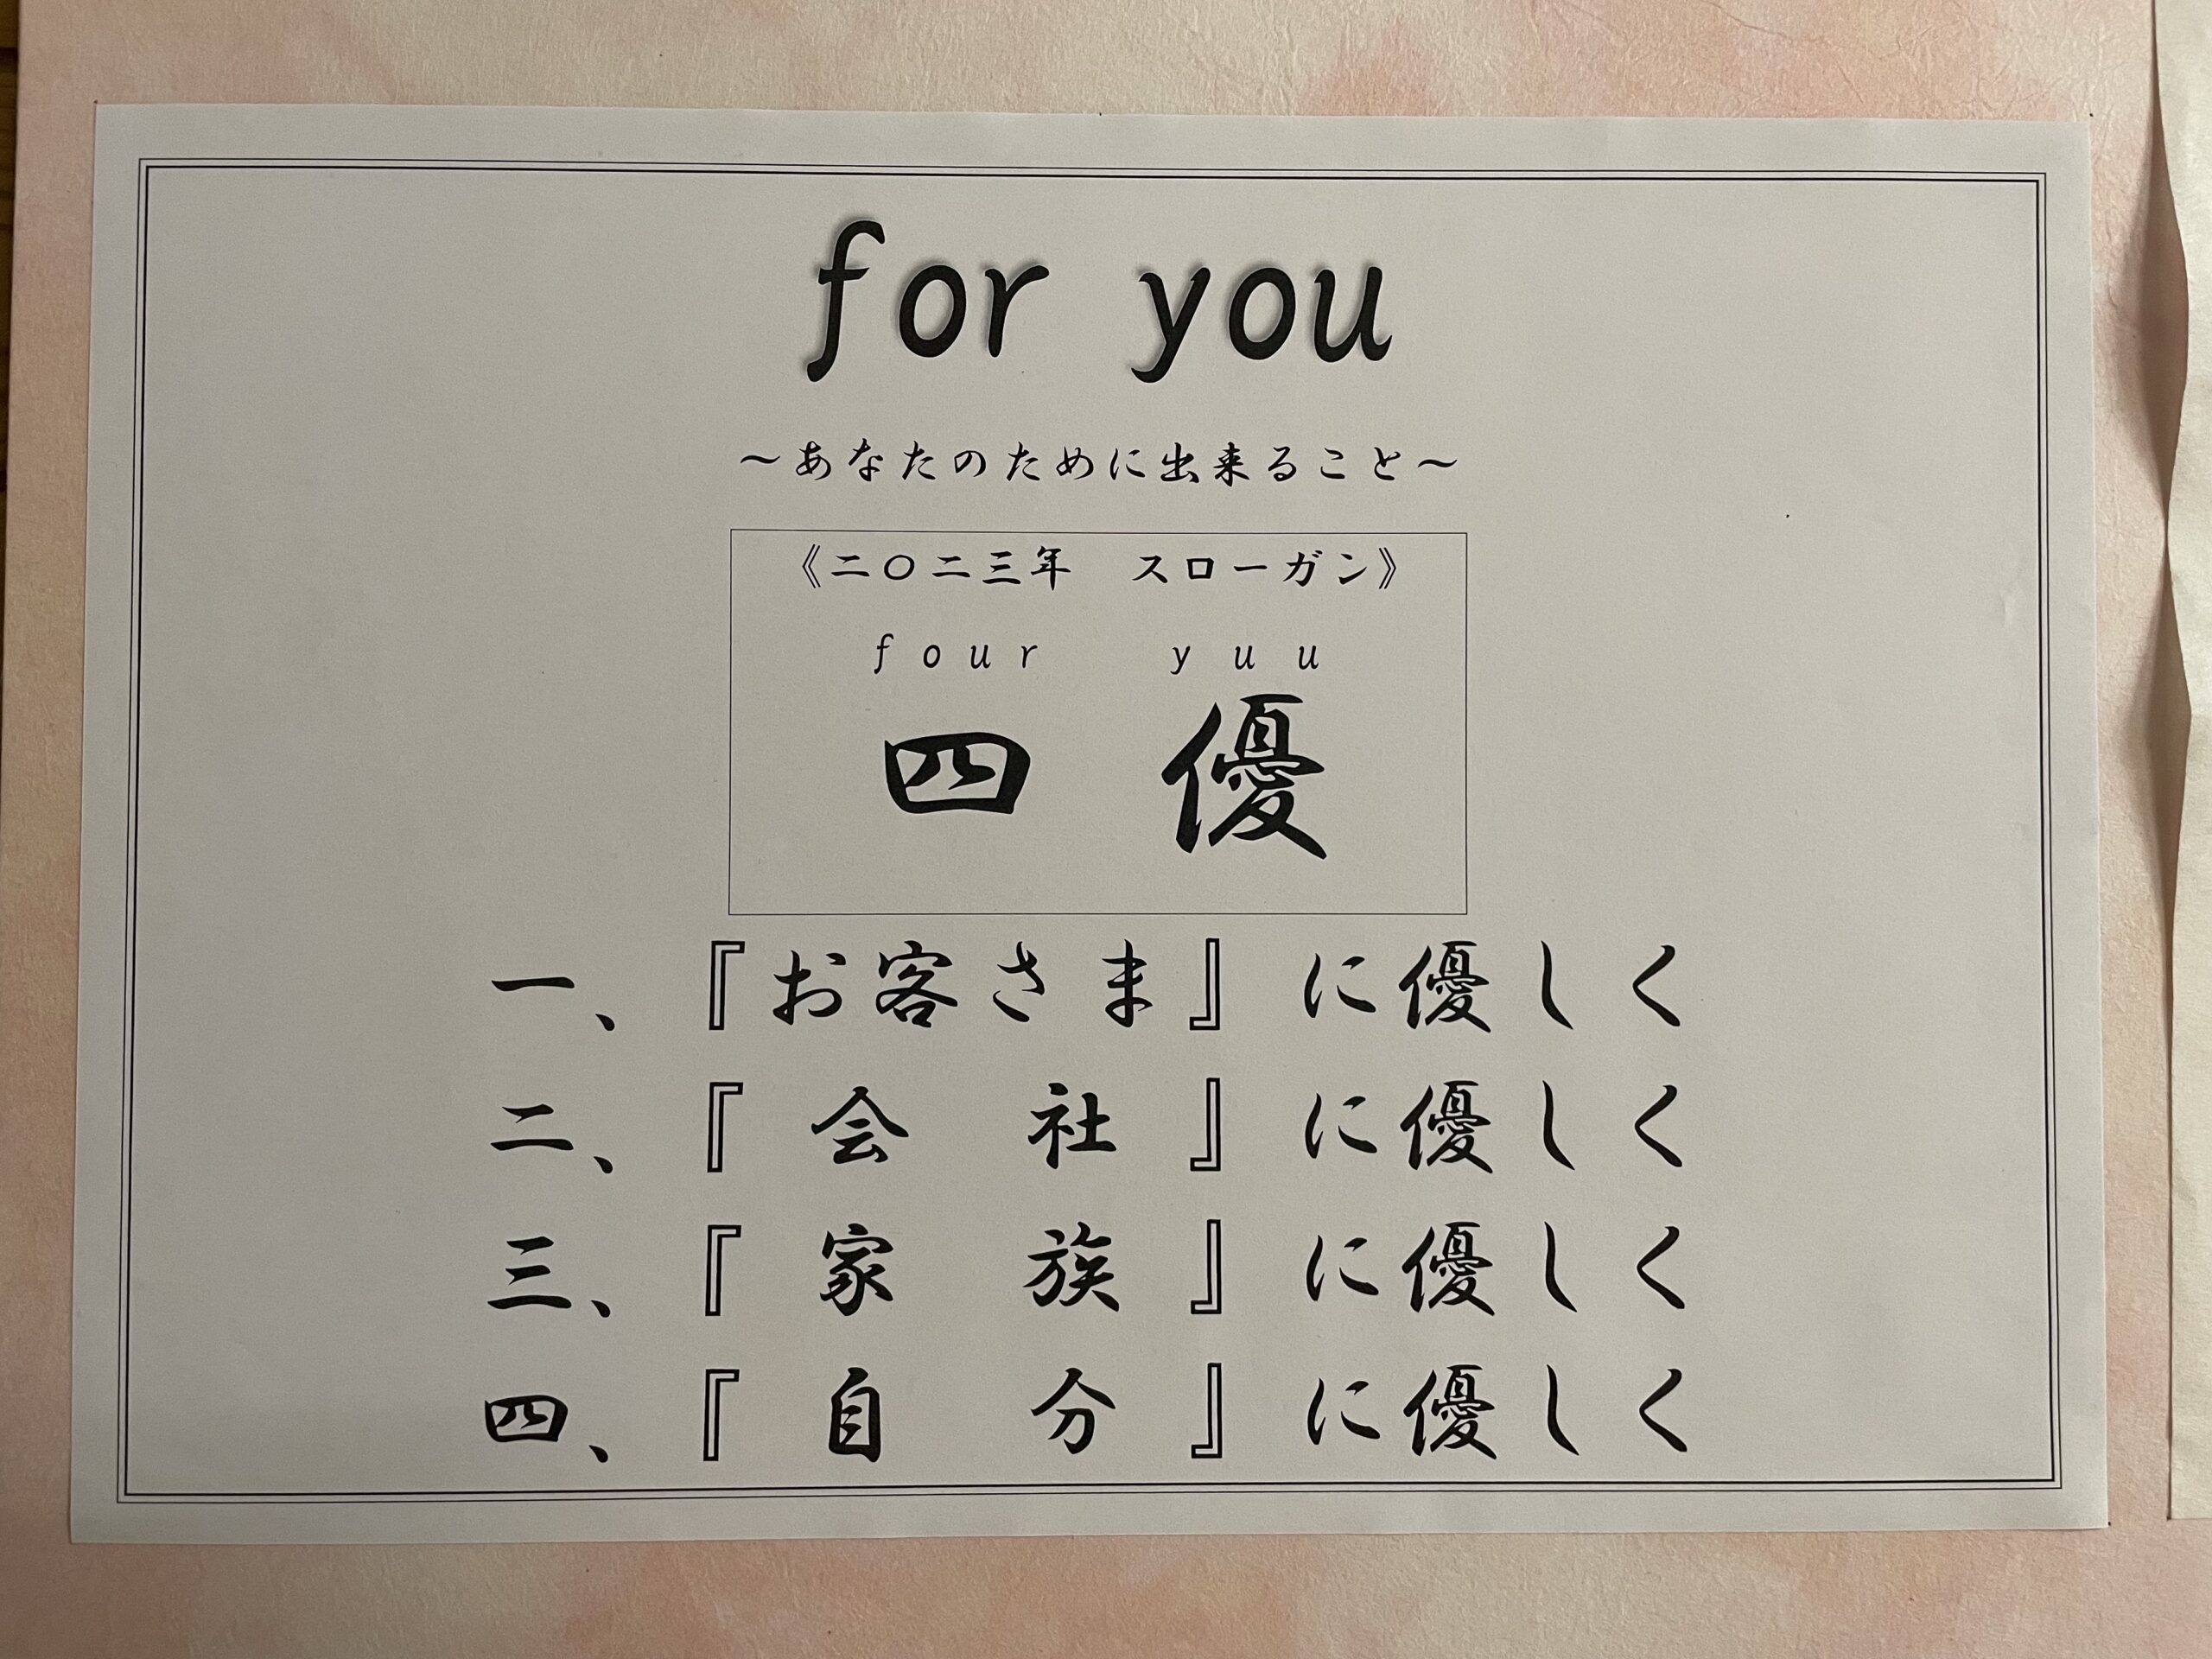 for you
～あなたのために出来ること～
《二〇二三年　スローガン》
four yuu
四 優
一、『お客さま』に優しく
二、『会 社』に優しく
三、『家 族』に優しく
四、『自 分』に優しく